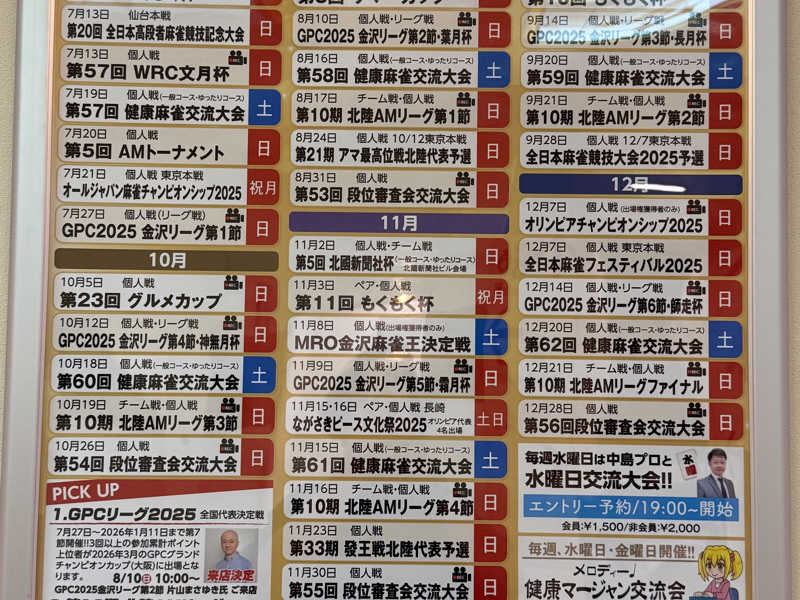 7月13日 仙台本戦
第20回 全日本高段者麻雀競技記念大会
日
7月13日 個人戦
第57回 WRC文月杯
日
7月19日 個人戦(一般コース・ゆったりコース)
第57回 健康麻雀交流大会
土
7月20日 個人戦
第5回 AMトーナメント
日
7月21日 個人戦 東京本戦
オールジャパン麻雀チャンピオンシップ2025
祝月
7月27日 個人戦(リーグ戦)
GPC2025 金沢リーグ第1節
日
10月
10月5日 個人戦
第23回 グルメカップ
日
10月12日 個人戦・リーグ戦
GPC2025 金沢リーグ第4節・神無月杯
日
10月18日 個人戦(一般コース・ゆったりコース)
第60回 健康麻雀交流大会
土
10月19日 チーム戦・個人戦
第10期 北陸AMリーグ第3節
日
10月26日 個人戦
第54回 段位審査会交流大会
日
PICK UP
1.GPCリーグ2025 全国代表決定戦
7月27日〜2026年1月11日まで第7
節開催!!3回以上の参加累計ポイント
上位者が2026年3月のGPCグランド
チャンピオンカップ(大阪)に出場とな
ります。
8/10(日) 10:00〜
来店決定
GPC2025金沢リーグ第2節 片山まさゆき氏 ご来店
8月10日 個人戦・リーグ戦
GPC2025 金沢リーグ第2節・葉月杯
日
8月16日 個人戦(一般コース・ゆったりコース)
第58回 健康麻雀交流大会
土
8月17日 チーム戦・個人戦
第10期 北陸AMリーグ第1節
日
8月24日 個人戦 10/12東京本戦
第21期 アマ最高位戦北陸代表予選
日
8月31日 個人戦
第53回 段位審査会交流大会
日
11月
11月2日 個人戦・チーム戦
第5回 北國新聞社杯(一般コース・ゆったりコース)
北國新聞社ビル会場
日
11月3日 ペア・個人戦
第11回 もくもく杯
祝月
11月8日 個人戦(出場権獲得者のみ)
MRO金沢麻雀王決定戦
土
11月9日 個人戦・リーグ戦
GPC2025 金沢リーグ第5節・霜月杯
日
11月15・16日 ペア・個人戦 長崎
ながさきピース文化祭2025 オリンピア代表
4名出場
土日
11月15日 個人戦(一般コース・ゆったりコース)
第61回 健康麻雀交流大会
土
11月16日 チーム戦・個人戦
第10期 北陸AMリーグ第4節
日
11月23日 個人戦
第33期 發王戦北陸代表予選
日
11月30日 個人戦
第55回 段位審査会交流大会
日
9月14日 個人戦・リーグ戦
GPC2025 金沢リーグ第3節・長月杯
日
9月20日 個人戦(一般コース・ゆったりコース)
第59回 健康麻雀交流大会
土
9月21日 チーム戦・個人戦
第10期 北陸AMリーグ第2節
日
9月28日 個人戦 12/7東京本戦
全日本麻雀競技大会2025予選
日
12月
12月7日 個人戦(出場権獲得者のみ)
オリンピアチャンピオンシップ2025
日
12月7日 個人戦 東京本戦
全日本麻雀フェスティバル2025
日
12月14日 個人戦・リーグ戦
GPC2025 金沢リーグ第6節・師走杯
日
12月20日 個人戦(一般コース・ゆったりコース)
第62回 健康麻雀交流大会
土
12月21日 チーム戦・個人戦
第10期 北陸AMリーグファイナル
日
12月28日 個人戦
第56回段位審査会交流大会
日
毎週水曜日は中島プロと
水曜日交流大会!!
エントリー予約/19:00〜開始
会員:¥1,500/非会員:¥2,000
毎週、水曜日・金曜日開催!!
メロディー♩
健康マージャン交流会